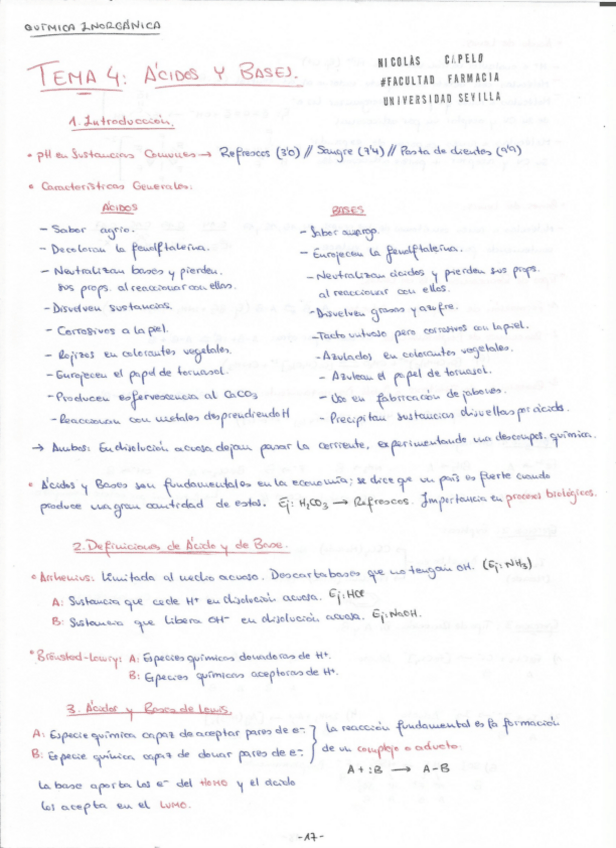 QUÍMICA INORGÁNICA
NICOLÁS CAPELO
#FACULTAD FARMACIA
UNIVERSIDAD SEVILLA
TEMA 4: ÁCIDOS Y BASES.
1. Introducción.
• pH en Sustancias Comunes → Refrescos (3'0) // Sangre (7'4) // Pasta de dientes (9'9)
• Características Generales:
ÁCIDOS
- Sabor agrio.
- Decoloran la fenolftaleína.
- Neutralizan bases y pierden
sus props. al reaccionar con ellos.
- Disuelven sustancias.
- Corrosivos a la piel.
- Rojizos en colorantes vegetales.
- Enrojecen el papel de tornasol.
- Producen esfervescencia al CaCO3
- Reaccionan con metales desprendiendo H
BASES
- Sabor amargo.
- Enrojecen la fenolftaleína.
- Neutralizan ácidos y pierden sus props.
al reaccionar con ellos.
- Disuelven grasas y azufre.
- Tacto untuoso pero corrosivos con la piel.
- Azulados en colorantes vegetales.
- Azulean el papel de tornasol.
- Uso en fabricación de jabones.
- Precipitan sustancias disueltas por ácidos.
→ Ambos: En disolución acuosa dejan pasar la corriente, experimentando una descompos. química.
• Ácidos y Bases son fundamentales en la economía; se dice que un país es fuerte cuando
produce una gran cantidad de estos. Ej: H2CO3 → Refrescos. Importancia en procesos biológicos.
2. Definiciones de Ácido y de Base.
• Arrhenius: Limitada al medio acuoso. Descarta bases que no tengan OH. (Ej: NH3)
A: Sustancia que cede H+ en disolución acuosa. Ej: HCl
B: Sustancia que libera OH- en disolución acuosa. Ej: NaOH.
• Brönsted-Lowry: A: Especies químicas donadoras de H+.
B: Especies químicas aceptoras de H+.
3. Ácidos y Bases de Lewis.
A: Especie química capaz de aceptar pares de e-
B: Especie química capaz de donar pares de e-
} La reacción fundamental es la formación
de un complejo o aducto.
A + :B → A-B
La base aporta los e- del HOMO y el ácido
los acepta en el LUMO.
-17-